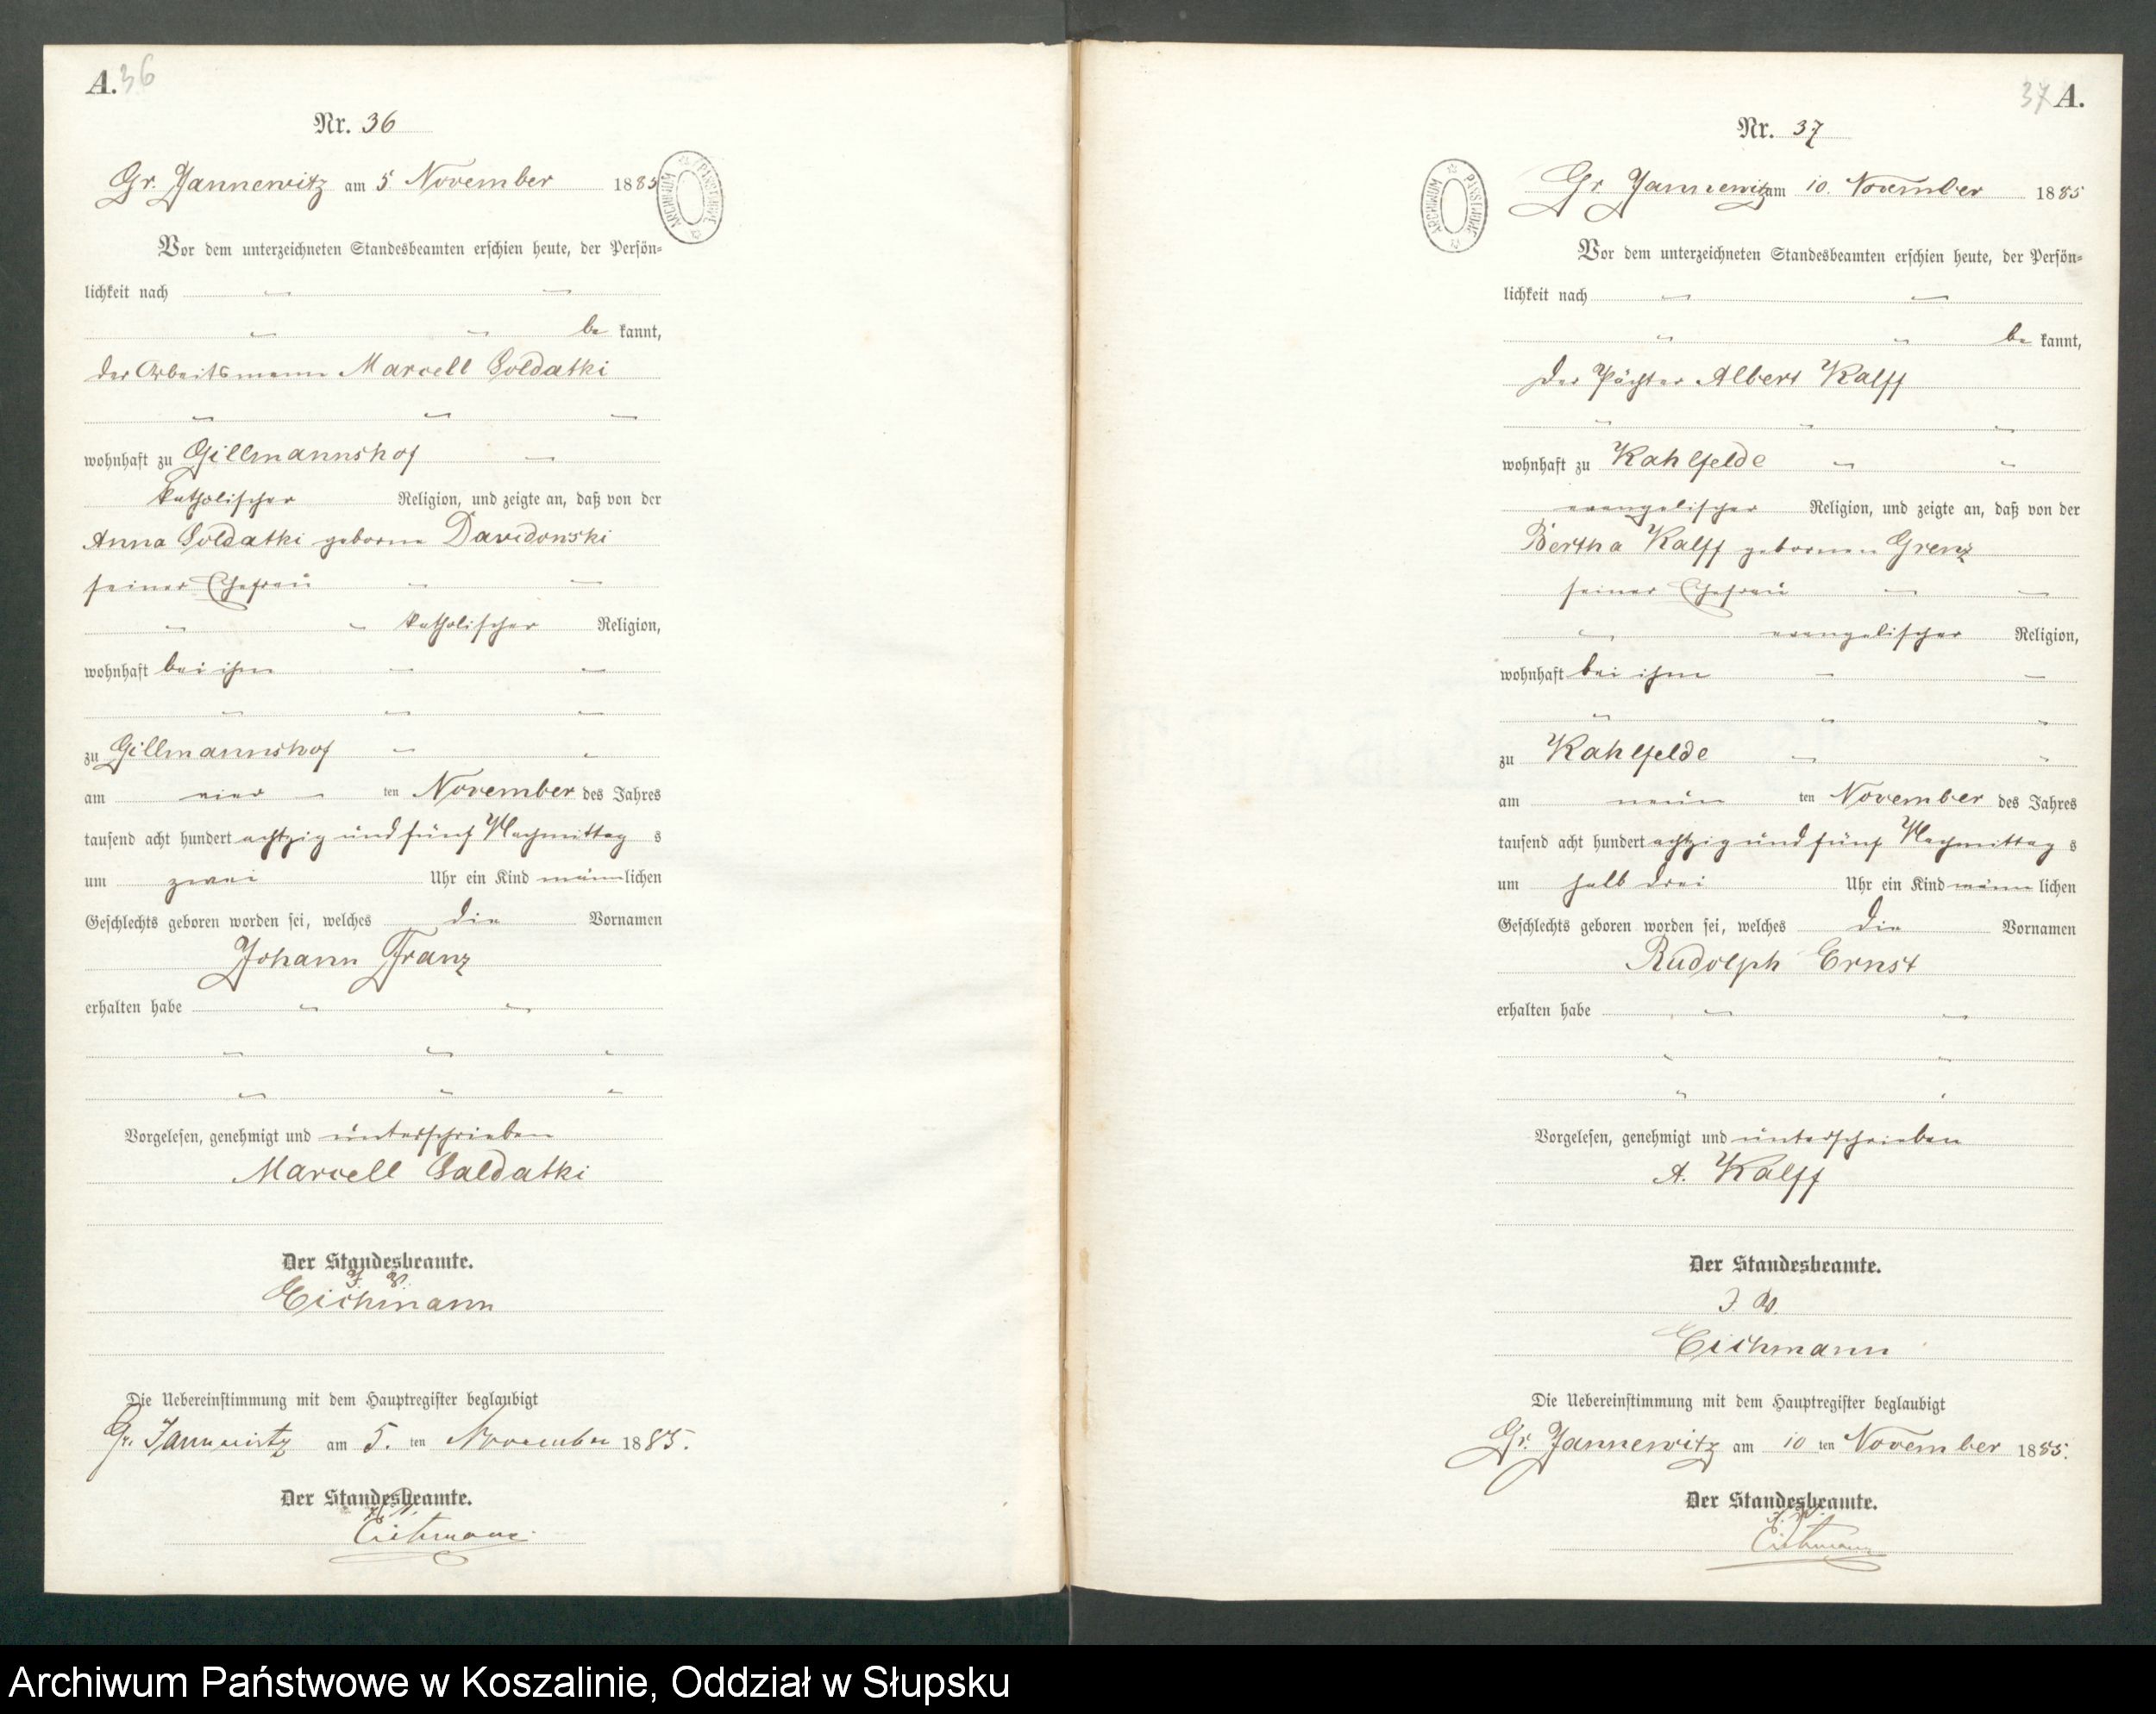 A. 36
Nr. 36
Gr. Jannewitz am 5 November 1885
Vor dem unterzeichneten Standesbeamten erschien heute, der Persön=
lichkeit nach
be kannt,
der Arbeitsmann Marcell Soldatki
wohnhaft zu Gillmannshof
katholischer Religion, und zeigte an, daß von der
Anna Soldatki geborne Davidonski
seiner Ehefrau
katholischer Religion,
wohnhaft bei ihm
zu Gillmannshof
am vier ten November des Jahres
tausend acht hundert achtzig und fünf Nachmittag s
um zwei Uhr ein Kind männlichen
Geschlechts geboren worden sei, welches die Vornamen
Johann Franz
erhalten habe
Vorgelesen, genehmigt und unterschrieben
Marcell Saldatki
Der Standesbeamte.
J. V.
Eichmann
Die Uebereinstimmung mit dem Hauptregister beglaubigt
Gr. Jannewitz am 5. ten November 1885.
Der Standesbeamte.
J. V.
Eichmann.
37 A.
Nr. 37
Gr. Jannewitz am 10. November 1885
Vor dem unterzeichneten Standesbeamten erschien heute, der Persön=
lichkeit nach
be kannt,
der Pächter Albert Kalff
wohnhaft zu Kahlfelde
evangelischer Religion, und zeigte an, daß von der
Bertha Kalff gebornen Grenz
seiner Ehefrau
evangelischer Religion,
wohnhaft bei ihm
zu Kahlfelde
am neun ten November des Jahres
tausend acht hundert achtzig und fünf Nachmittag s
um halb drei Uhr ein Kind männ lichen
Geschlechts geboren worden sei, welches die Vornamen
Rudolph Ernst
erhalten habe
Vorgelesen, genehmigt und unterschrieben
A. Kalff
Der Standesbeamte.
J. V.
Eichmann
Die Uebereinstimmung mit dem Hauptregister beglaubigt
Gr. Jannewitz am 10 ten November 1885.
Der Standesbeamte.
J. V.
Eichmann
ARCHIWUM PAŃSTWOWE
ARCHIWUM PAŃSTWOWE
Archiwum Państwowe w Koszalinie, Oddział w Słupsku